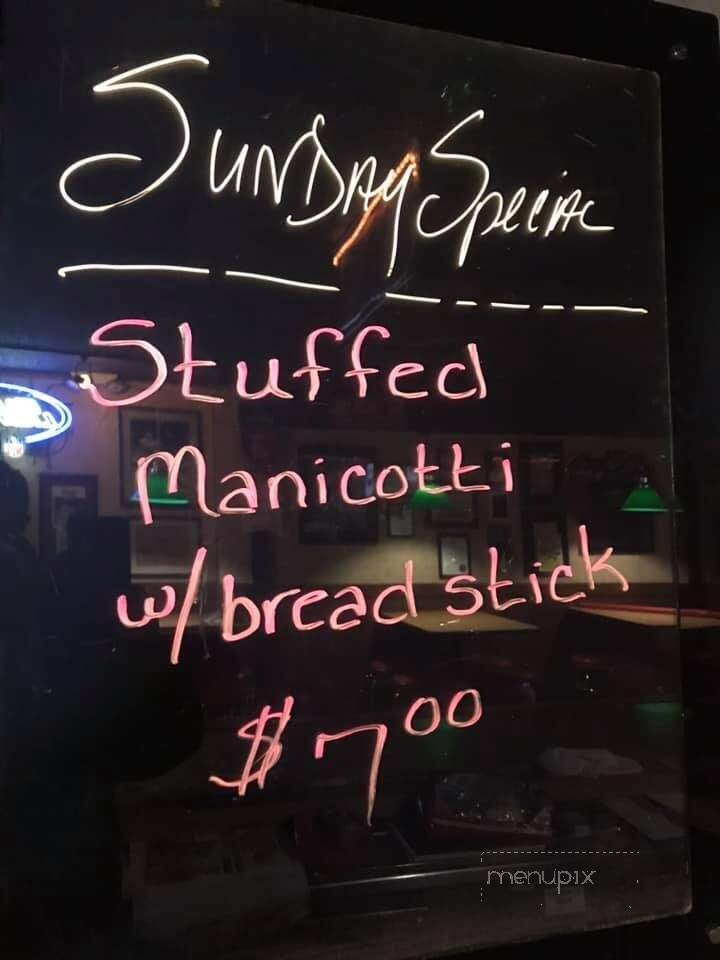 Sunday Special
Stuffed
Manicotti
w/bread stick
$7.00
menupix